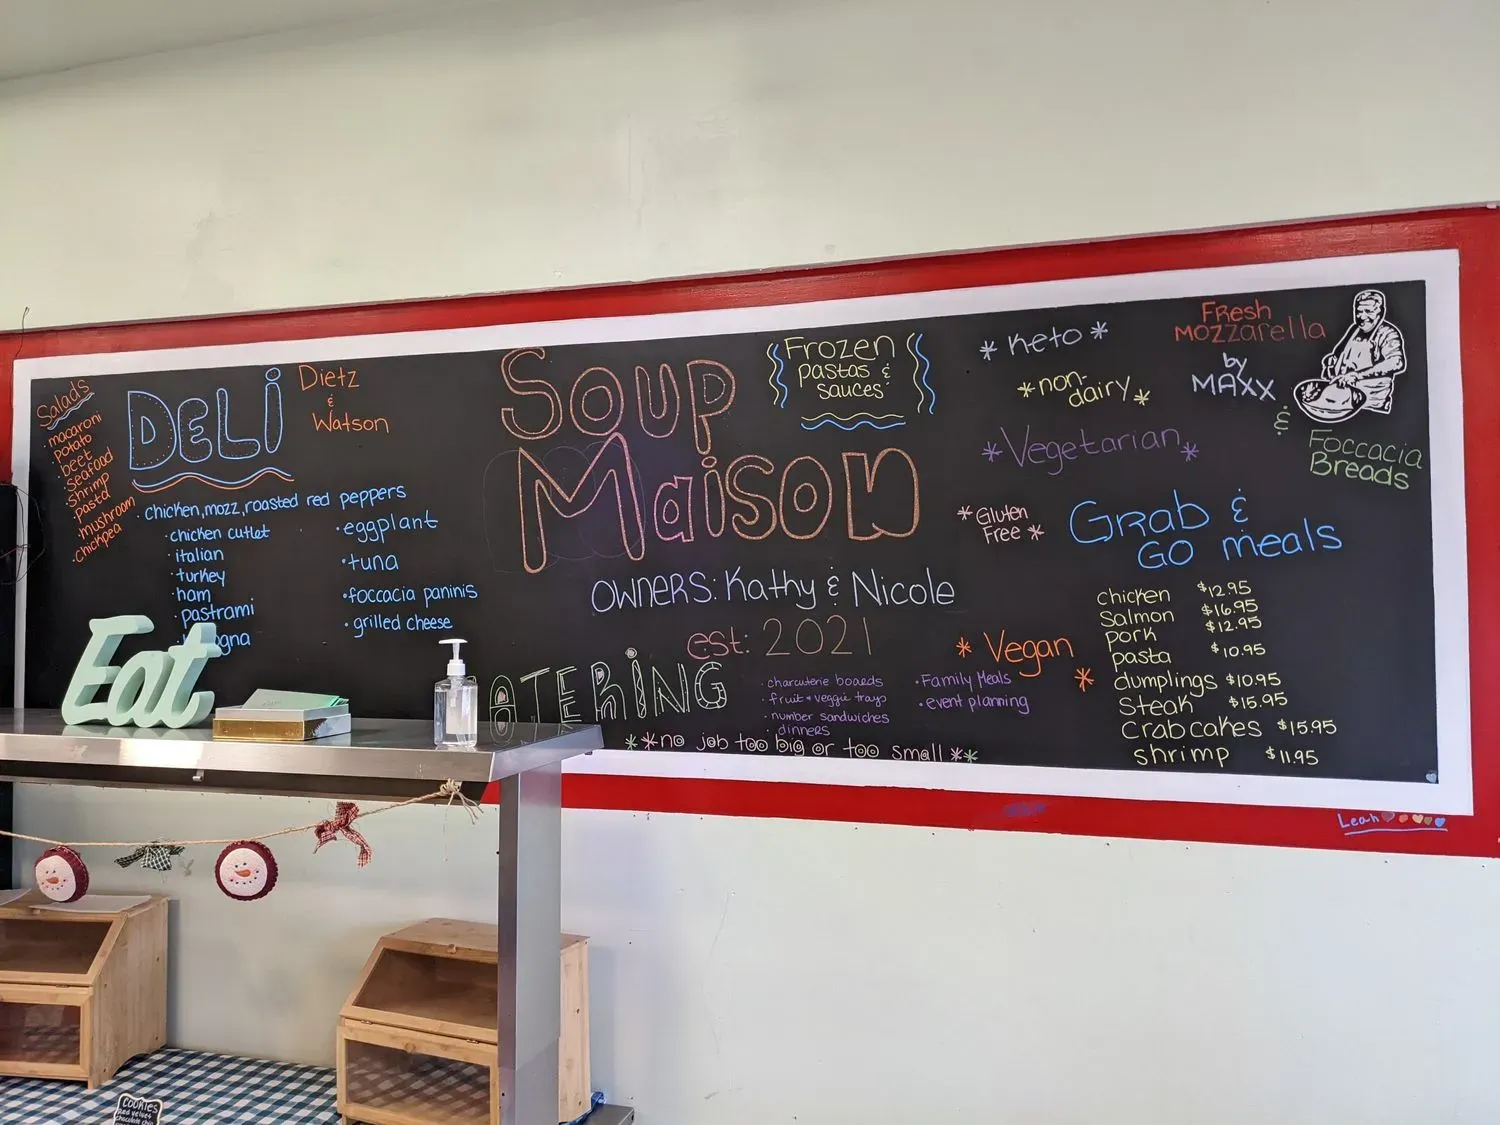 Salads
· macaroni
· potato
· beet
· seafood
· shrimp
· pasta
· mushroom
· chickpea
DELi
Dietz
&
Watson
· chicken, mozz, roasted red peppers
· chicken cutlet
· italian
· turkey
· ham
· pastrami
· eggplant
· tuna
· foccacia paninis
· grilled cheese
Eat
Soup
Maison
OWNERS: Kathy & Nicole
est: 2021
Frozen
pastas &
sauces
ATERiNG
· charcuterie boards
· fruit & veggie trays
· number sandwiches
· dinners
· Family Meals
· event planning
**no job too big or too small**
* Keto *
* non-
dairy *
* Vegetarian *
* Gluten
Free *
* Vegan *
Fresh
Mozzarella
by
MAXX
&
Foccacia
Breads
Grab &
GO meals
chicken $12.95
Salmon $16.95
pork $12.95
pasta $10.95
dumplings $10.95
Steak $15.95
Crabcakes $15.95
shrimp $11.95
Leah
COOKIES
Red velvet
chocolate chip